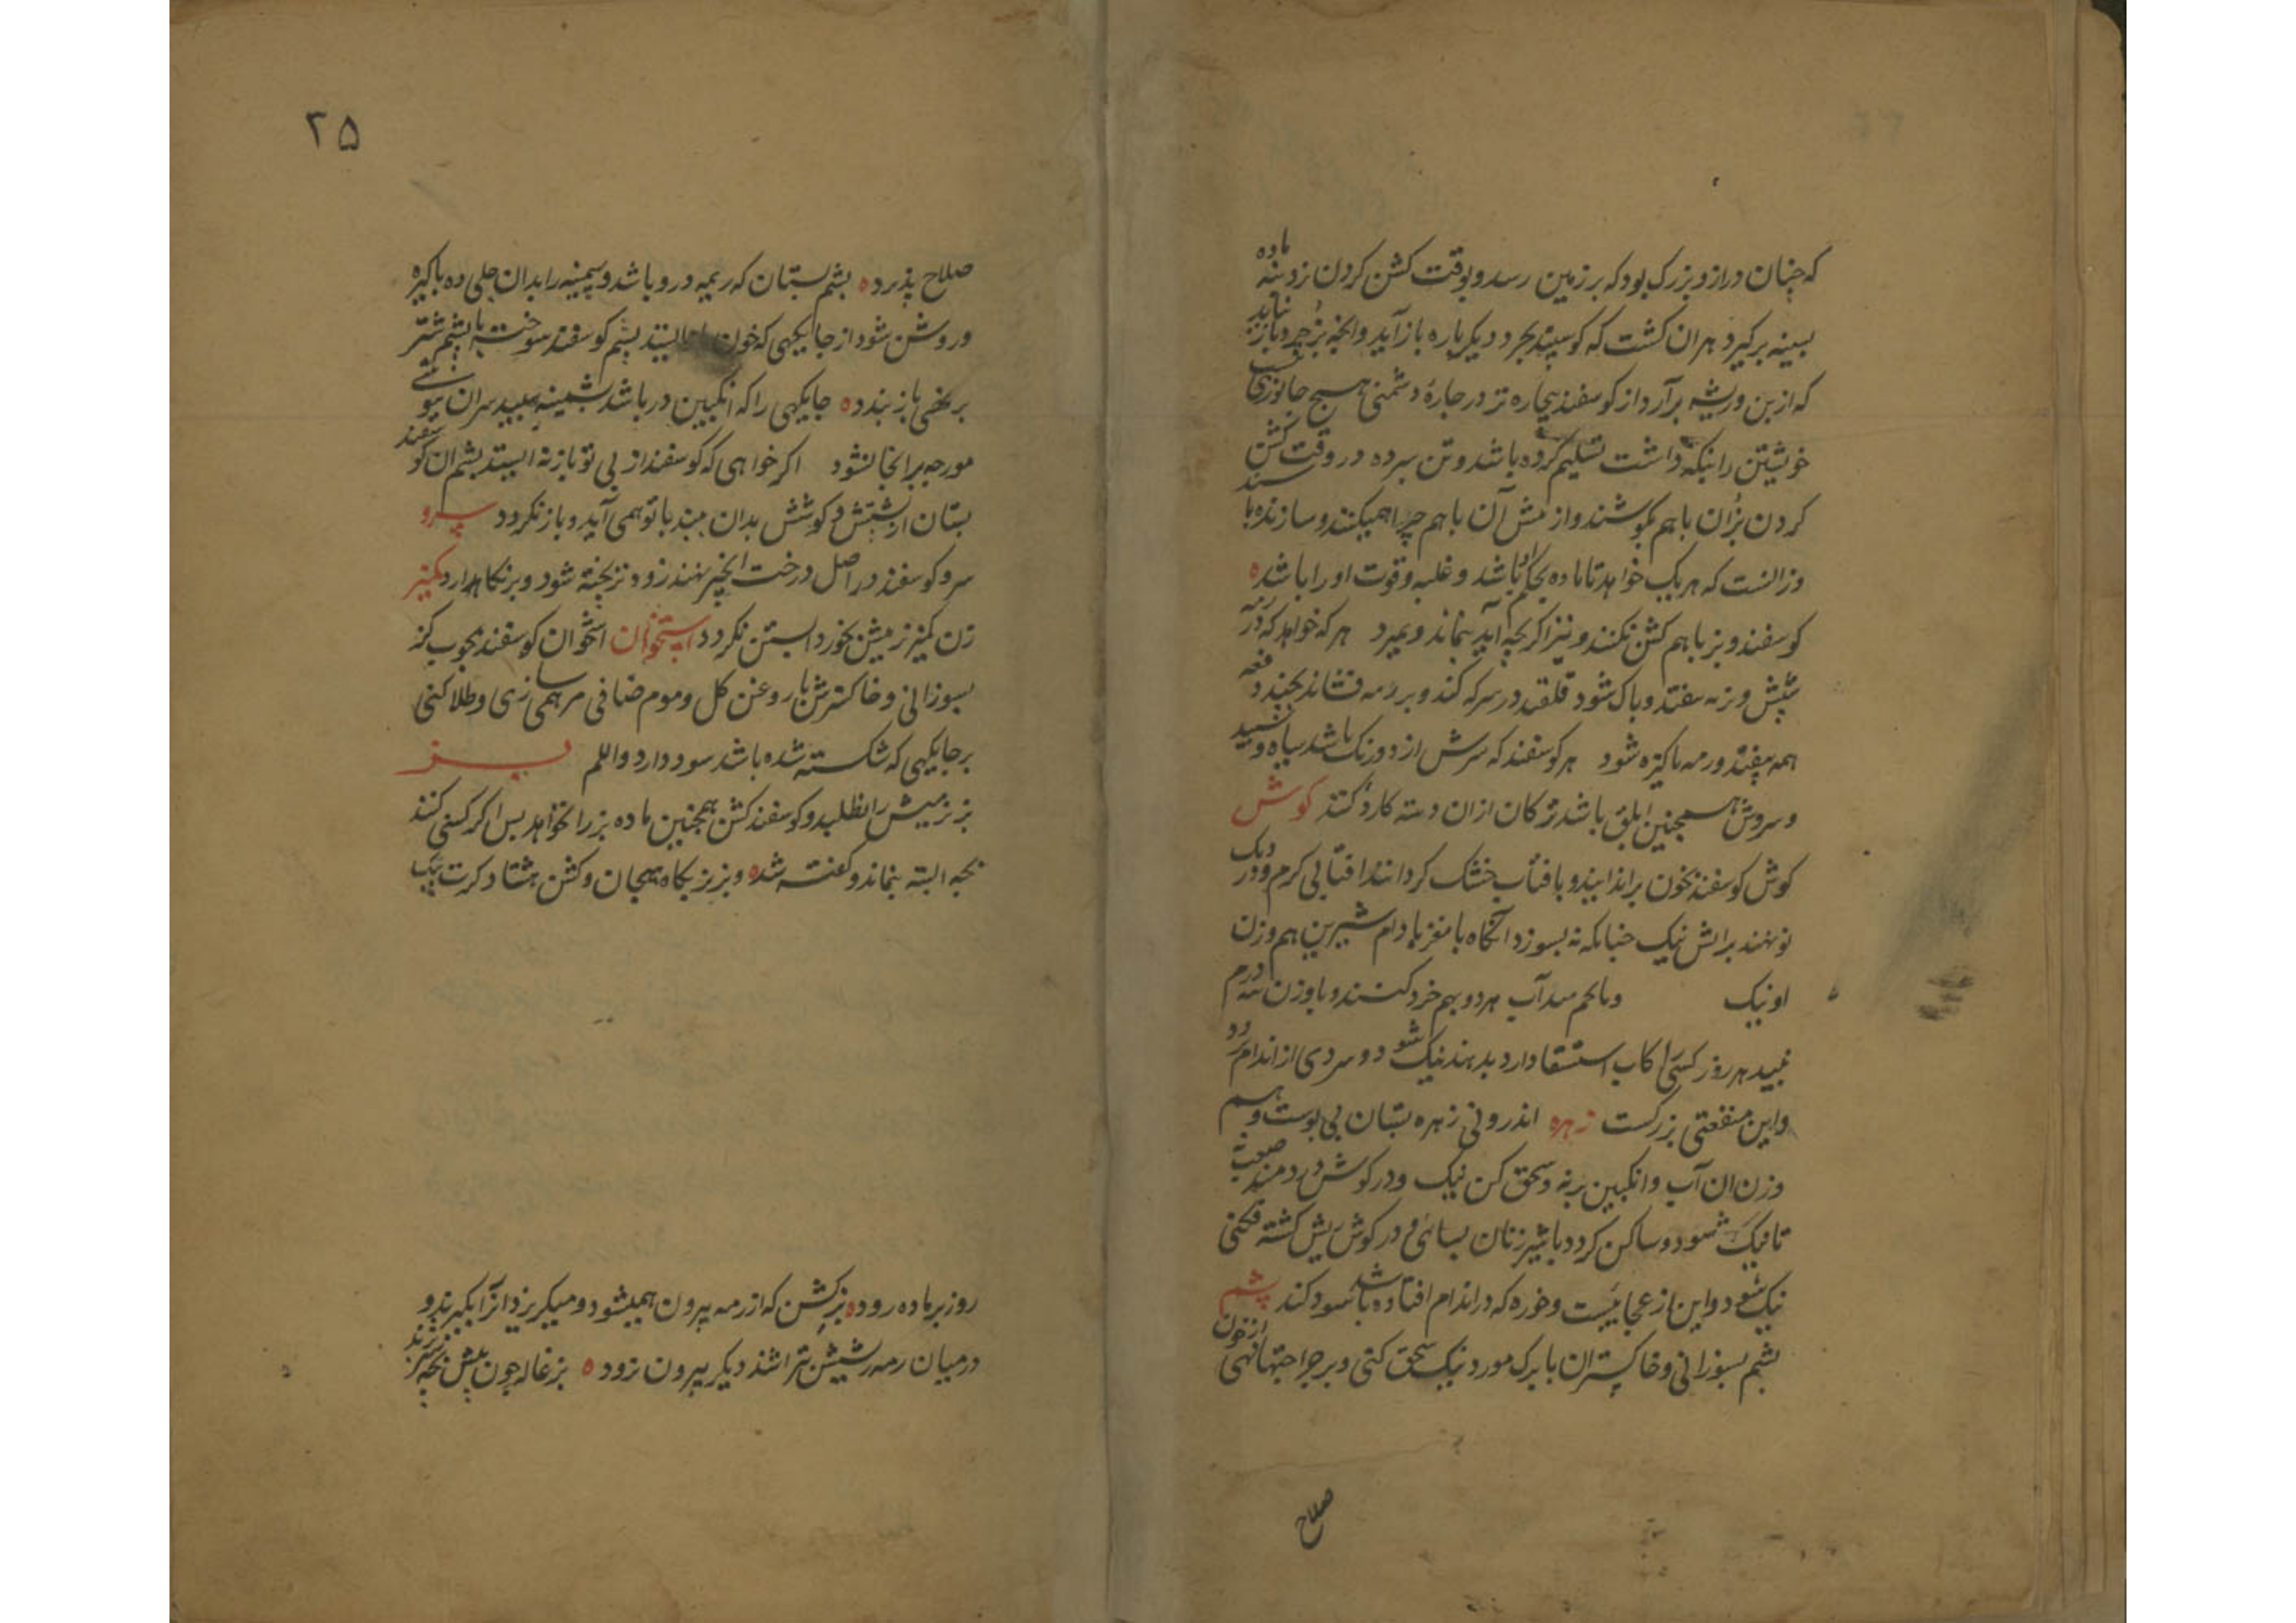 که چنان دراز و بزرک بود که بر زمین رسد و بوقت کشن کردن نزد بنه ماده
بسینه برکیرد هران کشت که کوسپند بجرد دیکر باره باز آید و انچه بز جرد باز نیاید
که از بن و ریشه برآرد از کوسفند بیجاره تر در جارهٔ دشمنی هیچ جانوری نیست
خویشتن را نیکه داشت تسلیم کرده باشد و تن سرده در وقت کشن
کردن بزان باهم بکوشند و از میش آن باهم چرا همیکنند و سازنده با
وز انست که هر یک خواهد تا ماده بجکم او باشد و غلبه و قوت او را باشد ه
کوسفند و بز باهم کشن نکنند و نیز اکر بچه آید نماند و بمیرد هر که خواهد که در رمه
شپش و نزنه سفتد و باک شود قلقند در سرکه کند و بر رمه فشاند بجند دفعه
همه بیفتد و رمه باکیزه شود هر کوسفند که سرش از دو رنک باشد سیاه و سپید
و سروش همچنین ابلق باشد ترکان ازان دسته کارد کنند کوش
کوش کوسفند بخون براندایند و بافتاب خشک کردانند افتابی کرم و در دیک
نو نهند بر اتش نیک جنانکه نه بسوزد آنکاه با مغز بادام شیرین هم وزن
او نیک هر دو بهم خرد کنند و با وزن سه درم
نبید هر روز کسی را کاب استسقا دارد بدهند نیک شود و سردی از اندام برود
و این منفعتی بزرکست زهره اندرونی زهره بستان بی بوست و هم
وزن ان آب و انکبین برنه و سحق کن نیک و در کوش دردمند صعب نه
تا نیک شود و ساکن کردد با شیر زنان بسائی و در کوش ریش کشته فکنی
نیک شود و این از عجائبست و خوره که در اندام افتاده باشد سود کند پشم
بشم بسوزانی و خاکستران با برک مورد نیک سحق کنی و بر جراحتها نهی از خون
صلاح
۲۵
صلاح پذیرد ه بشم بستان که ریمه درو باشد و سیمینه را بدان جلی ده باکیزه
و روشن شود از جایکهی که خون بازنایستد بشم کوسفند سوخته با بشم شتر
برنهی باز بندد ه جایکهی را که انکبین در باشد بشمینه سپید سران بپوشی
مورجه بر انجا نشود اکر خواهی که کوسفند از بی تو بازنه ایستد بشم ان کوسفند
بستان از پشتش و کوشش بدان ببند با تو همی آید و باز نکردد سرو
سرو کوسفند در اصل درخت انجیر نهند زود تر بخته شود و بر نکاهدارد کمیز
زن کمیز میش بخورد ابستن نکردد استخوان استخوان کوسفند بجوب کز
بسوزانی و خاکسترش با روغن کل و موم صافی مرهمی سازی و طلا کنی
بر جایکهی که شکسته شده باشد سود دارد واللم بز
بز نر میش را نطلبد و کوسفند کشن همچنین ماده بز را نخواهد بس اکر کسی کند
بچه البته نماند و کفته شد ه و بز نر بکاه هیجان و کشن هشتاد کرت بیک
روز بر ماده رود ه بز کشن که از رمه بیرون همیشود و میکریزد انرا بکیرند و
در میان رمه ریشش بتراشند دیکر بیرون نرود ه بزغاله چون پیش بچه شیر برند